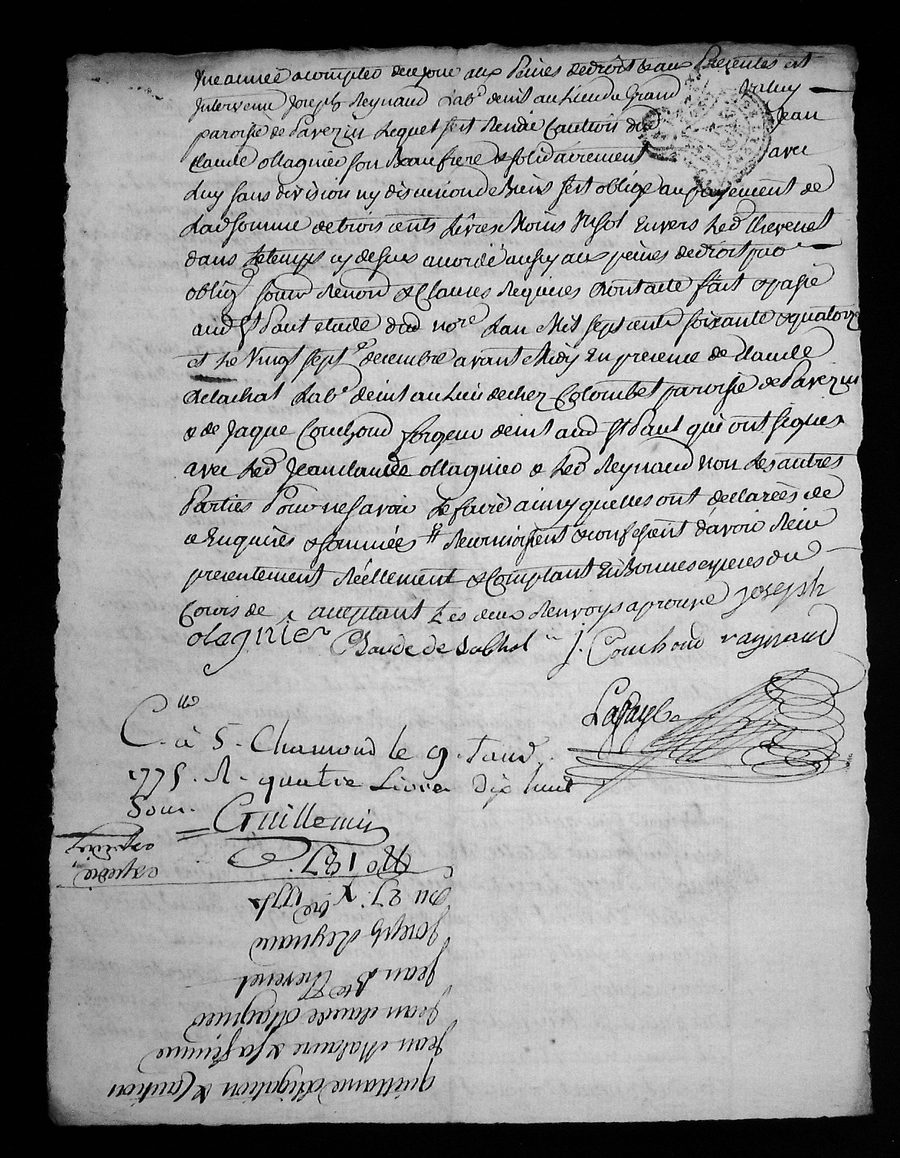 une année a compter de ce jour aux peines de droit &aux presentes est
intervenu Joseph Reynaud Lab.r demt au Lieu du Grand
paroisse de Pavezin Lequel s'est Rendu Caution dud Jean
Claude ollagnier son Beaufrere & solidairement avec
Luy sans division ny discution de biens s'est obligé au payement de
Lad somme de trois cents Livres Moins un sol Envers Led Thevenet
dans Le temps cy dessus accordé aussy aux peines de droit par
oblig Soum Renon & Clauses Requises Dont acte fait & passé
aud St Paul etude dud nore Lan Mil sept cents soixante & quatorze
et Le Vingt sept e decembre avant Midy En presence de Claude
Delachal Lab.r demt au Lieu de chez Colombet paroisse de Pavezin
& de Jaque Couchoud forgeur demt aud St Paul qui ont signés
avec Led Jean Claude ollagnier & Led Reynaud non Les autres
Parties Pour ne savoir Le faire ainsy quelles ont declarées de
ce Enquises & sommées # Reconnoissent & confessent d'avoir Reçu
presentement Réellement & Comptant En Bonnes especes du
Cours de acceptant Les deux Renvoys aprouvé joseph
olagnier Claude de Lachal J. Couchoud raynaud
C.lle à S. Chamond le 9. Janv.
1775. R. quatre Livres dix huit
Sous. Guillemin
No 187.
Du 27. Xbre 1774
Joseph Reynaud
Jean Bte Thevenet
Jean Claude Ollagnier
Jean & sa femme
quittance obligation & Caution
expedié